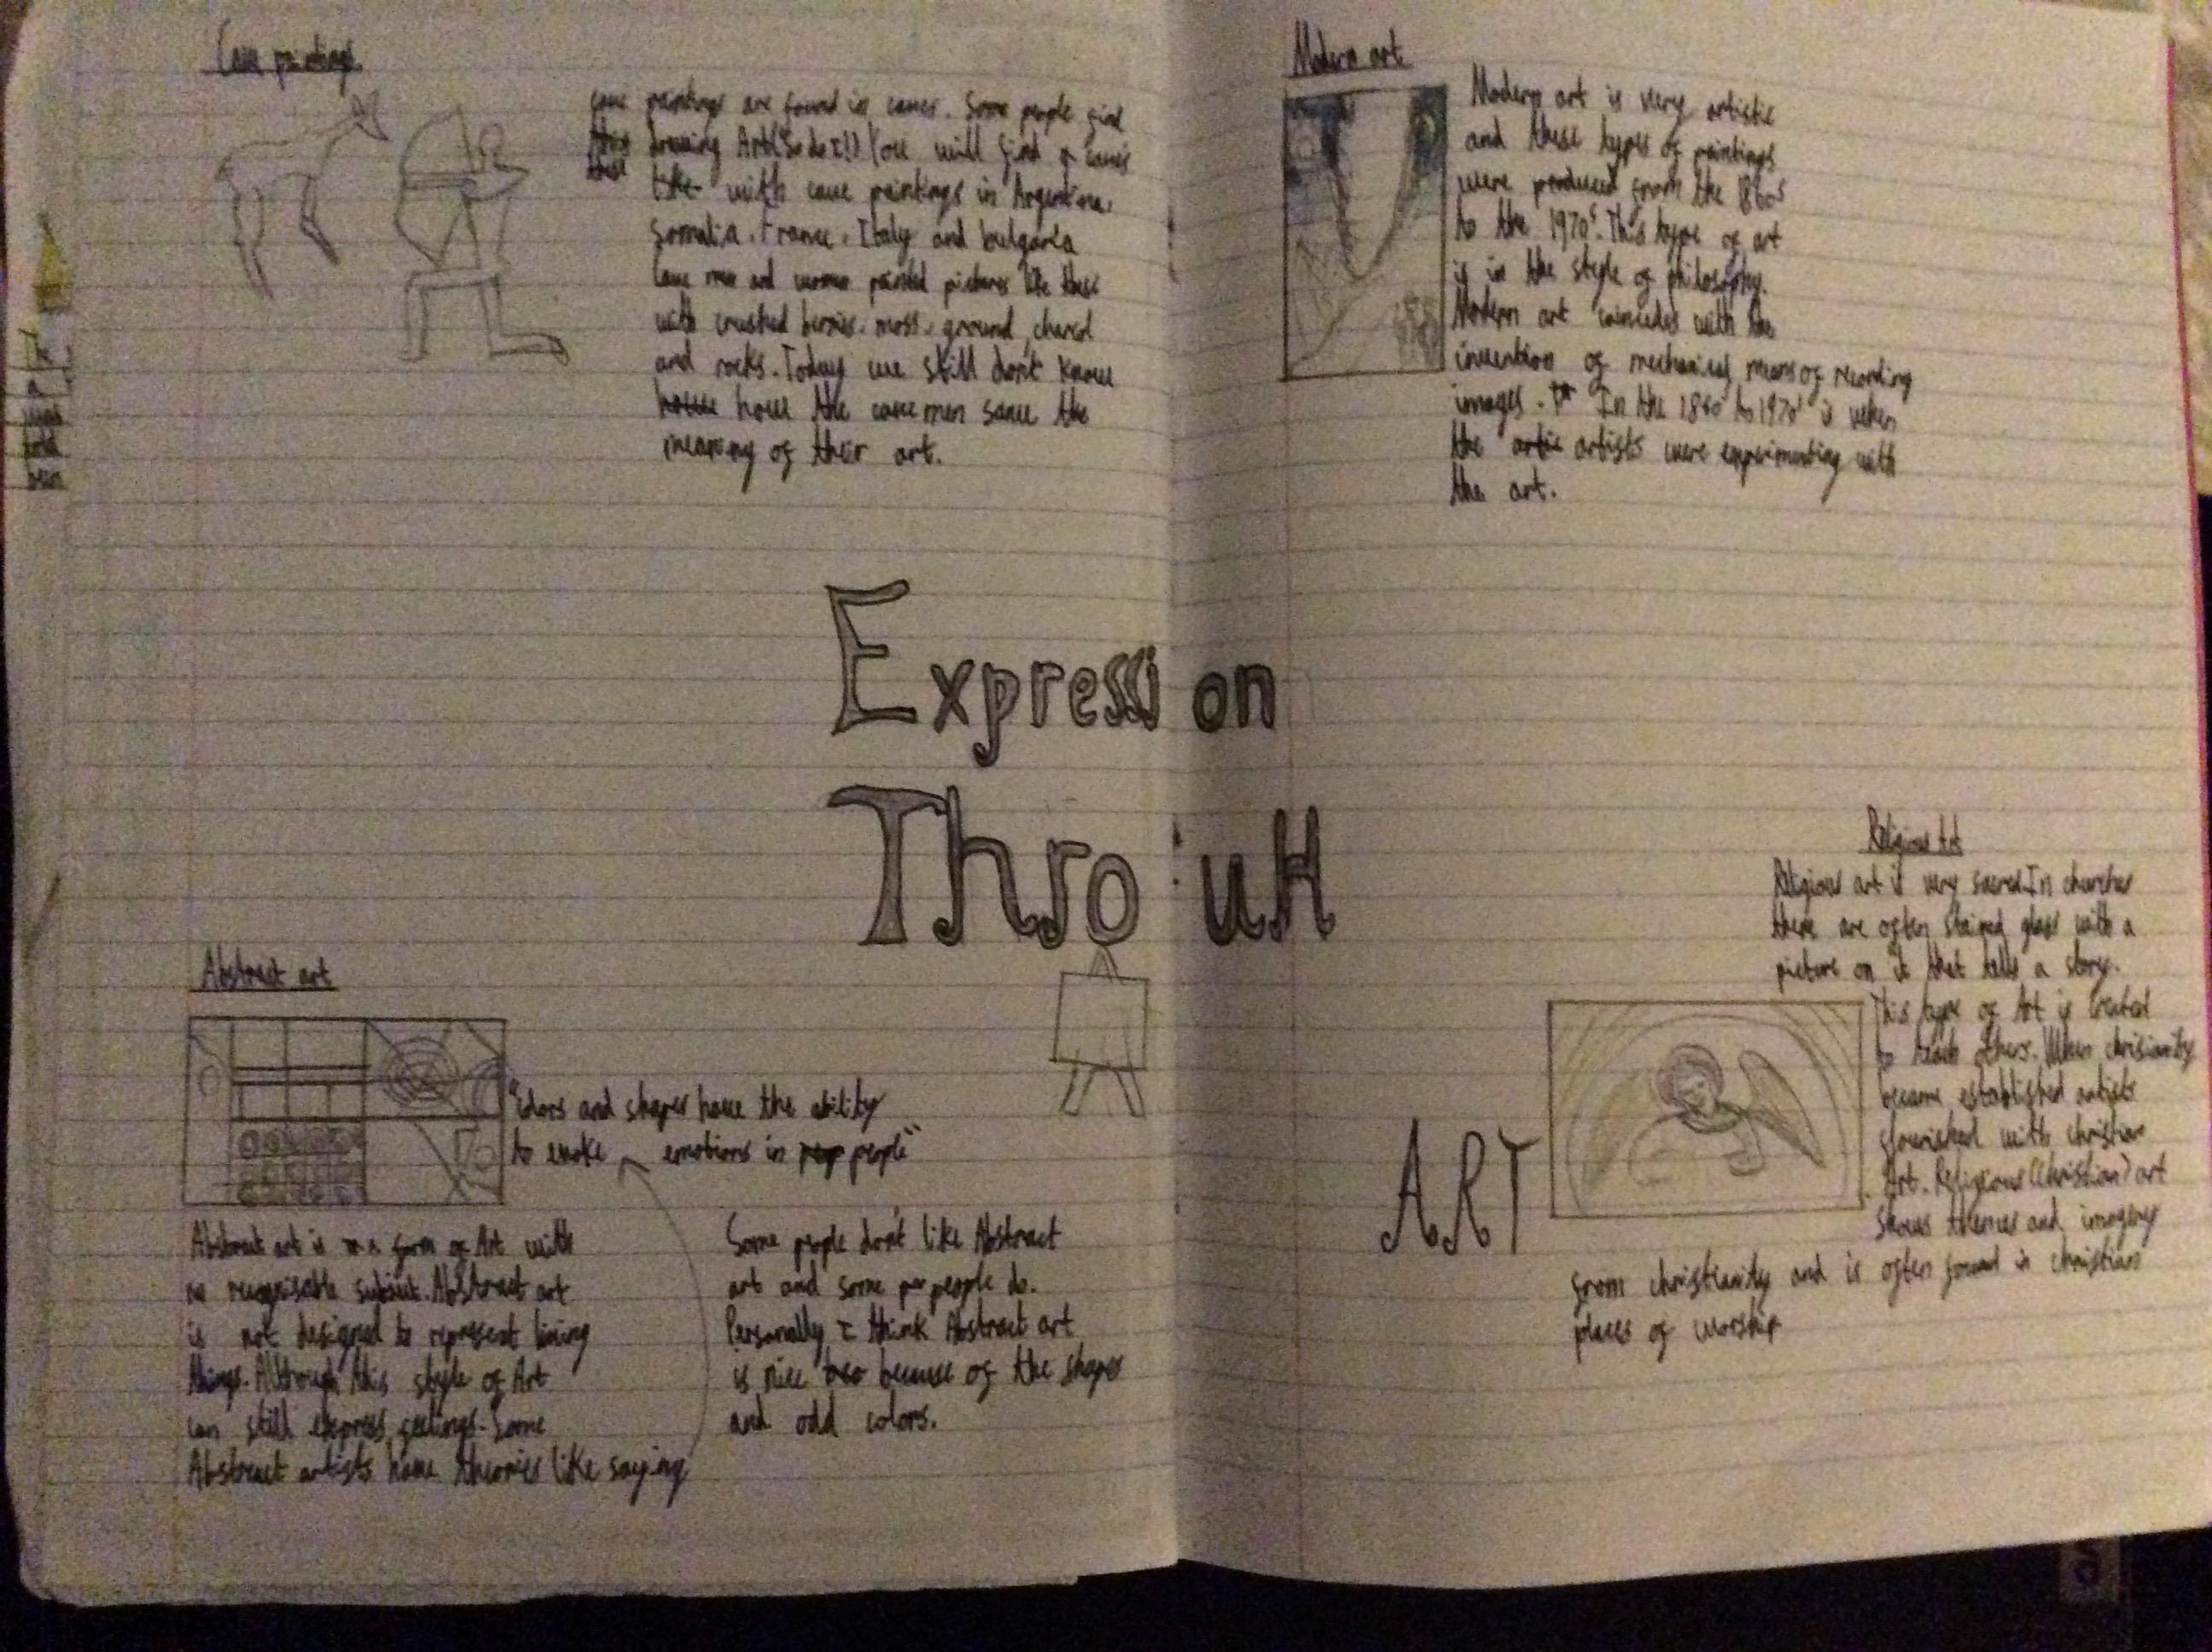 Cave paintings
cave paintings are found in caves. Some people find
drawing Art(So do I!) You will find caves
with cave paintings in Argentina,
Somalia, France, Italy and bulgaria
Cave men and women painted pictures like these
with crushed berries, moss, ground, chared
and rocks. Today we still don't know
how the cave men saw the
meaning of their art.
Modern art
Modern art is very artistic
and these types of paintings
were produced from the 1860s
to the 1970s. This type of art
is in the style of philosophy.
Modern art coincides with the
invention of mechanical means of recording
images. In the 1860 to 1970s is when
the artists were experimenting with
the art.
Expression
ThrouH
ART
Abstract art
"colors and shapes have the ability
to evoke emotions in people"
Abstract art is a form of Art with
no recognisable subject. Abstract art
is not designed to represent living
things. Although this style of Art
can still express feelings. Some
Abstract artists have theories like saying
Some people don't like Abstract
art and some people do.
Personally I think Abstract art
is nice because of the shapes
and odd colors.
Religious Art
Religious art is very sacred. In churches
there are often stained glass with a
picture on it that tells a story.
This type of Art is created
to teach others. When chrisianity
became established artists
flourished with christian
Art. Religious (Christian) art
shows themes and imagery
from christianity and is often found in christian
places of worship